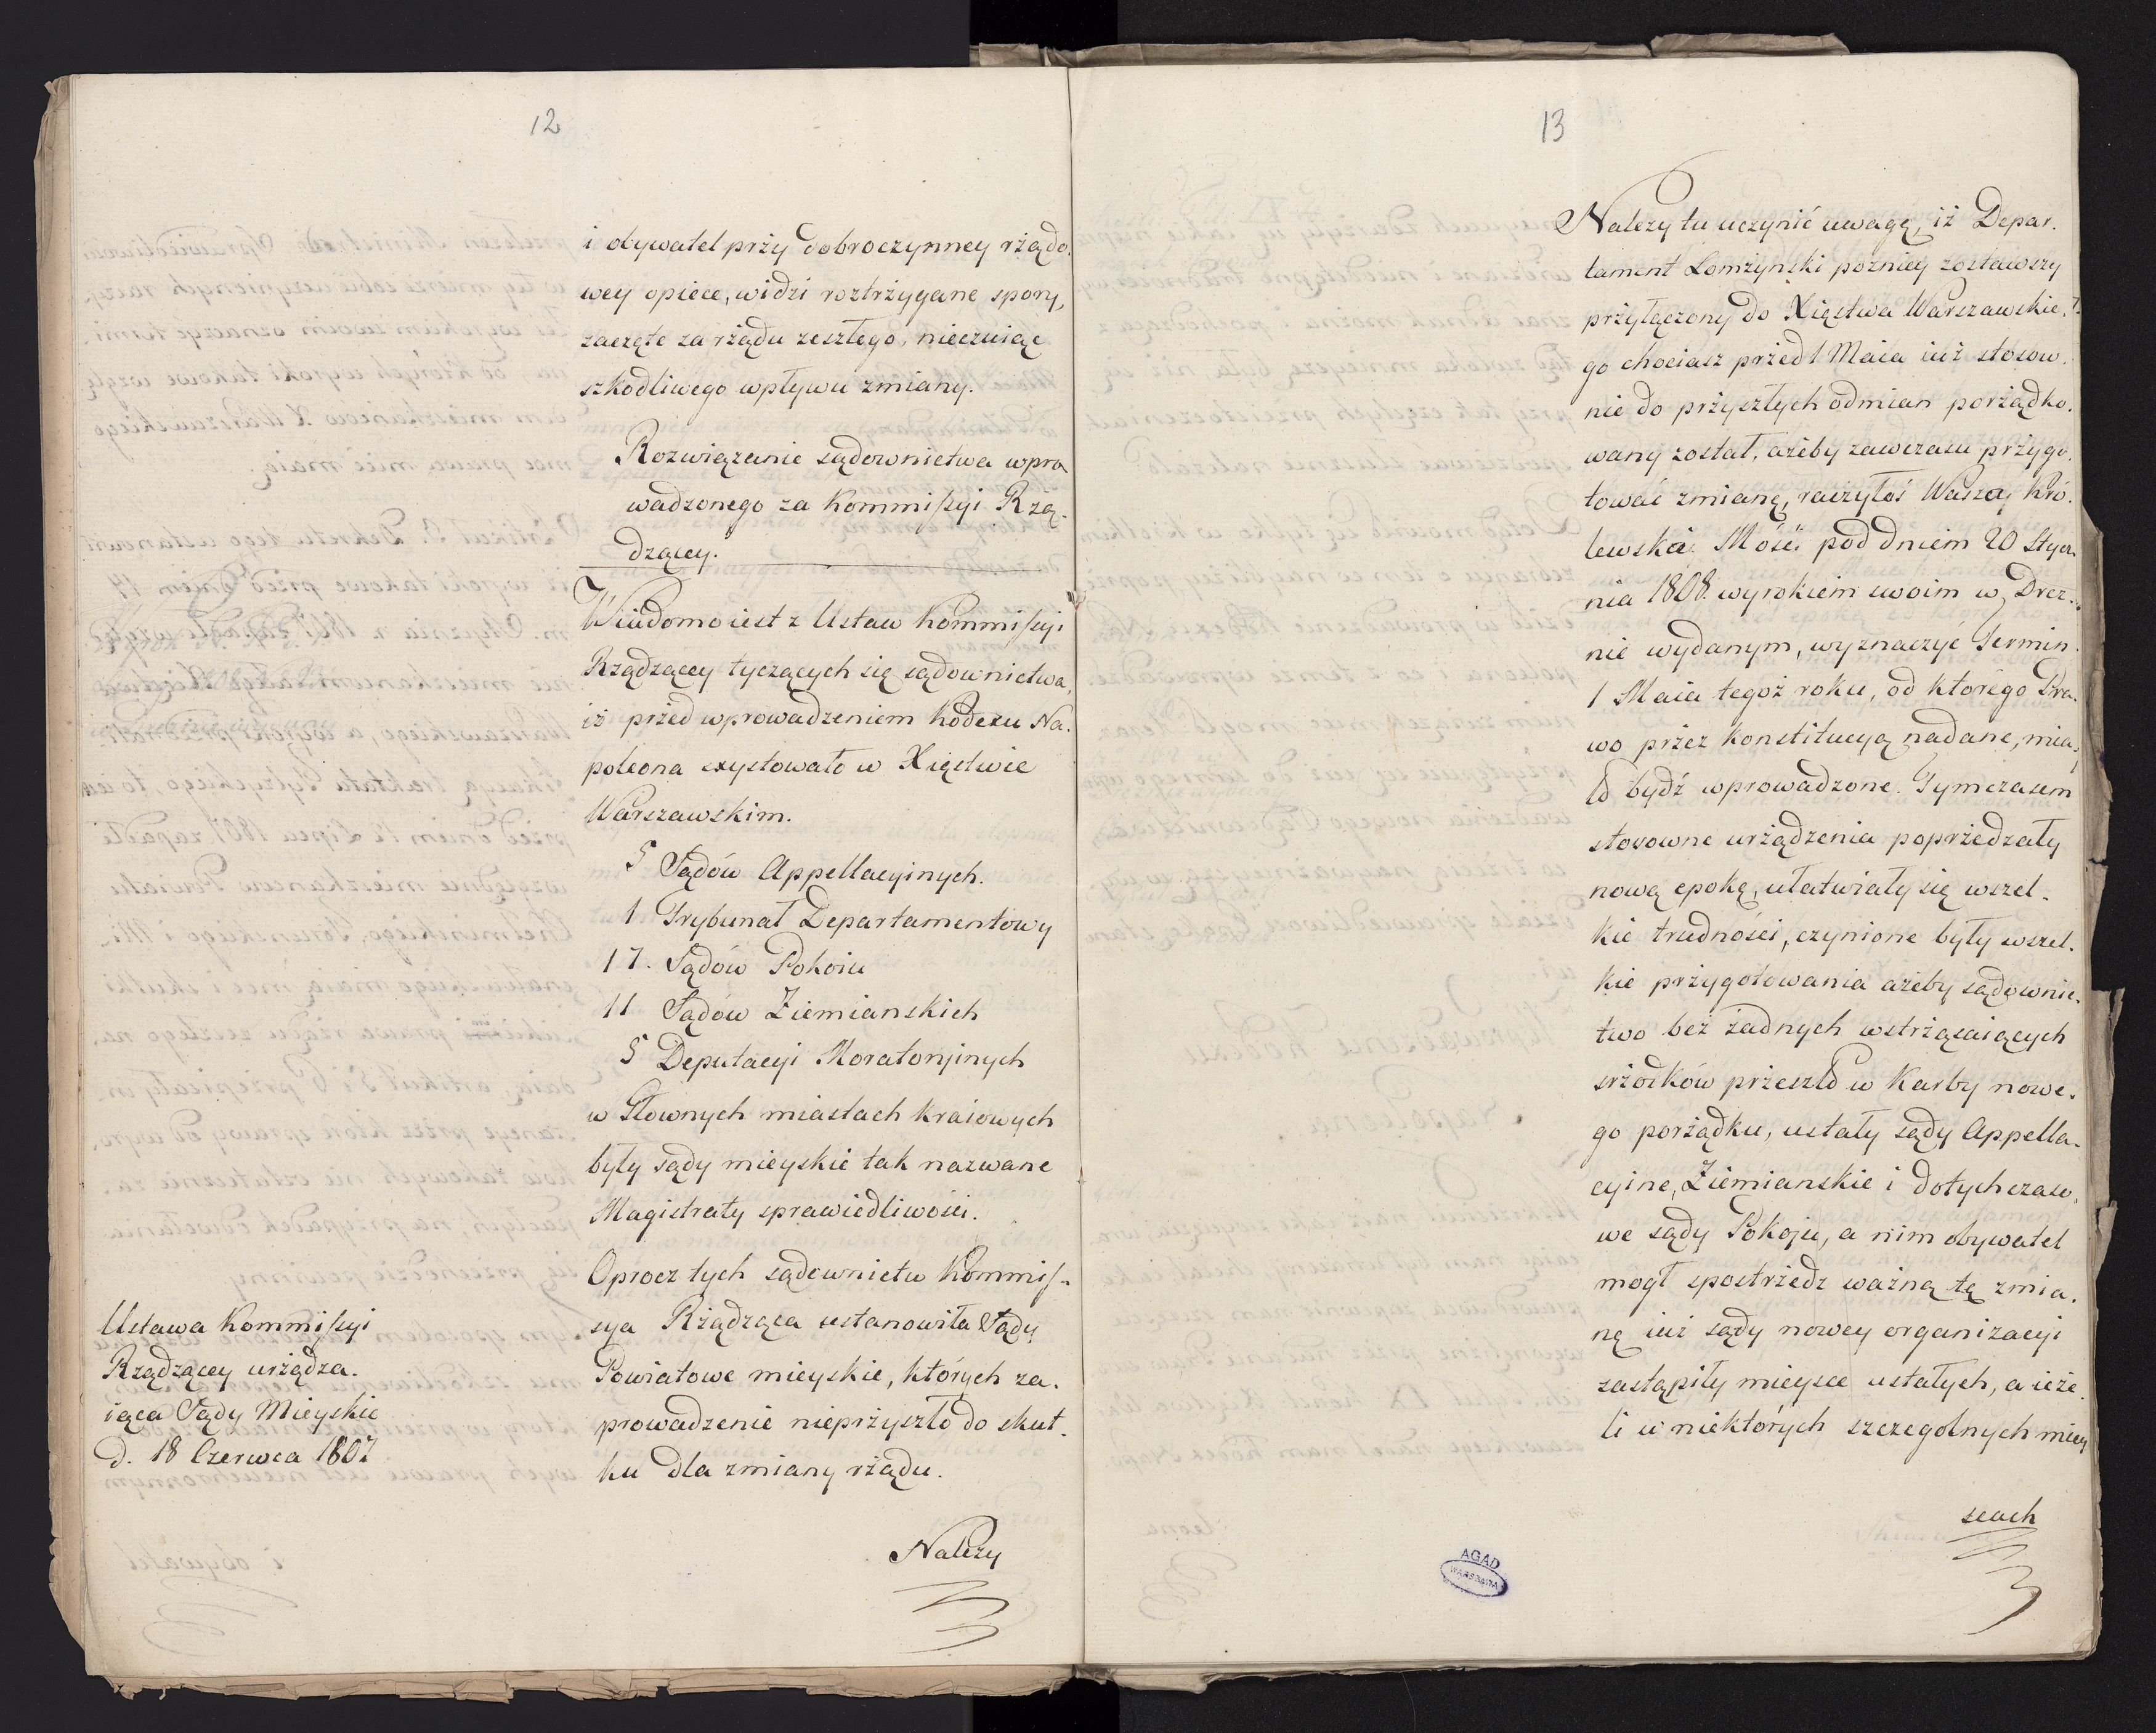 12
i obywatel przy dobroczynney rządo.
wey opiece, widzi roztrzygane spory,
zaczęte za rządu zeszłego, nieczuiąc
szkodliwego wpływu zmiany.
Rozwiązanie sądownictwa wpro
wadzonego za Kommissyi Rzą-
dzącey.
Wiadomo iest z Ustaw Kommissyi
Rządzącey tyczących się sądownictwa,
iż przed wprowadzeniem Kodexu Na.
poleona exystowało w Xięstwie
Warszawskim.
5 Sądów Appellacyinych.
1 Trybunał Departamentowy
17. Sądów Pokoiu
11 Sądów Ziemianskich
5 Deputacyi Moratoryinych
w Głownych miastach kraiowych
były sądy mieyskie tak nazwane
Magistraty sprawiedliwości.
Oprocz tych sądownictw Kommis-
sya Rządząca ustanowiła Sądy
Powiatowe mieyskie, których za.
prowadzenie nieprzyszło do skut.
ku dla zmiany rządu.
Ustawa Kommissyi
Rządzącey urządza.
iąca Sądy Mieyskie
d. 18 Czerwca 1807
Należy
13
Należy tu uczynić uwagę, iż Depar.
tament Łomżynski pozniey zostawszy
przyłączony do Xięstwa Warszawskie.
go chociasz przed 1 Maia iuż stosow.
nie do przyszłych odmian porządko.
wany został, ażeby zawczasu przygo.
tować zmianę, raczyłoś Wasza Kró.
lewska Mość pod dniem 20 Stycz.
nia 1808. wyrokiem swoim w Drez.
nie wydanym, wyznaczyć Termin
1 Maia tegoż roku, od ktorego Pra.
wo przez Konstitucyą nadane, mia.
ło bydź wprowadzone. Tymczasem
stosowne urządzenia poprzedzały
nową epokę, ułatwiały się wszel.
kie trudności, czynione były wszel.
kie przygotowania ażeby sądownic.
two bez żadnych wstrząsaiących
srzodków przeszło w Karby nowe.
go porządku, ustały sądy Appella.
cyine, Ziemianskie i dotychczaso.
we sądy Pokoju, a nim obywatel
mogł spostrzedz ważną tę zmia.
nę iuż sądy nowey organizacyi
zastąpiły mieysce ustałych, a ieże.
li w niektórych szczegolnych miey
scach
AGAD
WARSZAWA